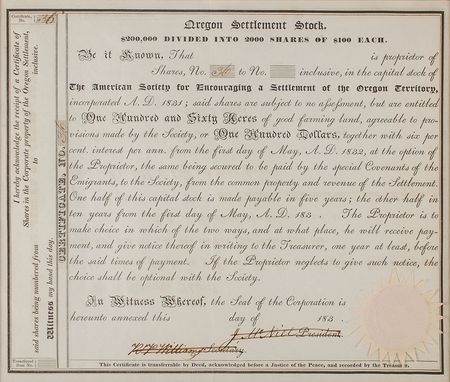 Oregon Settlement Stock.
$200,000 DIVIDED INTO 2000 SHARES OF $100 EACH.
Be it Known, That is proprietor of
Shares, No. to No. inclusive, in the capital stock of
The American Society for Encouraging a Settlement of the Oregon Territory,
incorporated A. D. 1831; said shares are subject to no assessment, but are entitled
to One Hundred and Sixty Acres of good farming land, agreeable to pro-
visions made by the Society, or One Hundred Dollars, together with six per
cent. interest per ann. from the first of May, A. D. 1832, at the option of
the Proprietor, the same being secured to be paid by the special Covenants of the
Emigrants, to the Society, from the common property and revenue of the Settlement.
One half of this capital stock is made payable in five years; the other half in
ten years from the first day of May, A. D. 183 . The Proprietor is to
make choice in which of the two ways, and at what place, he will receive pay-
ment, and give notice thereof in writing to the Treasurer, one year at least, before
the said times of payment. If the Proprietor neglects to give such notice, the
choice shall be optional with the Society.
In Witness Whereof, the Seal of the Corporation is
hereunto annexed this day of 183 .
J. McNeil President.
Secretary.
This Certificate is transferrable by Deed, acknowledged before a Justice of the Peace, and recorded by the Treasurer.
CERTIFICATE, NO.
Certificate,
No.
I hereby acknowledge the receipt of a Certificate of
Shares in the Corporate property of the Oregon Settlement,
said shares being numbered from to inclusive.
Witness my hand this day.
Transferred
from No.